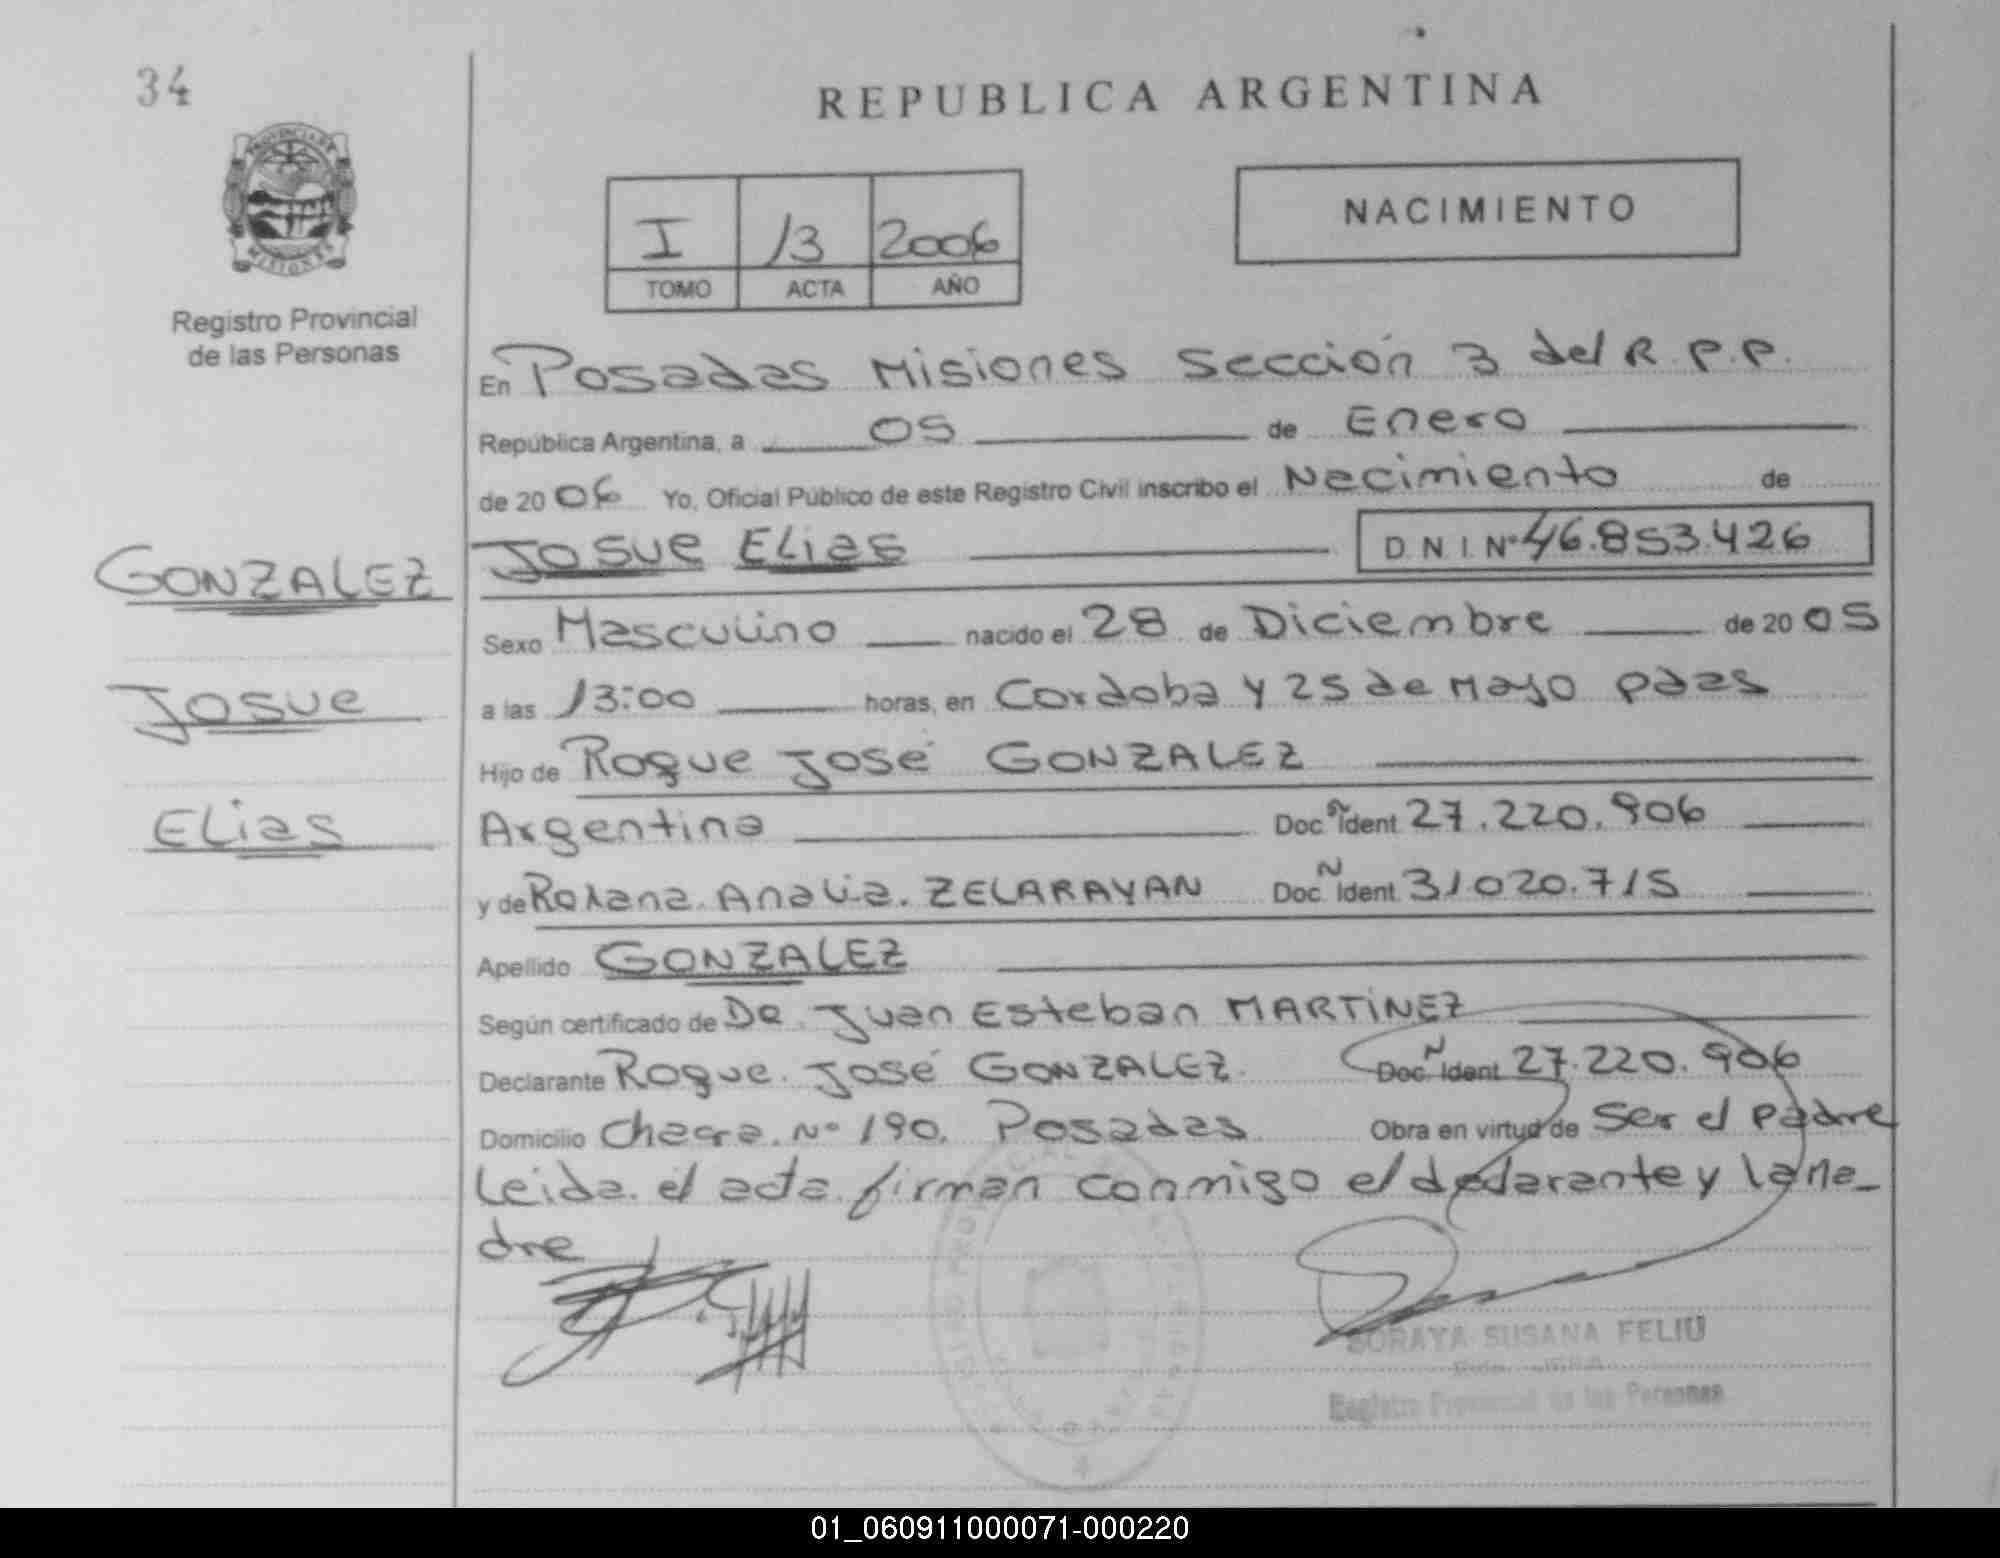 34
REPUBLICA ARGENTINA
PROVINCIA DE
MISIONES
Registro Provincial
de las Personas
I 13 2006
TOMO ACTA AÑO
NACIMIENTO
En Posadas Misiones Sección 3 del R.P.P.
República Argentina, a 05 de Enero
de 20 06 Yo, Oficial Público de este Registro Civil inscribo el Nacimiento de
GONZALEZ
Josue
Elias
Josue Elias D N I. Nº 46.853.426
Sexo Masculino nacido el 28 de Diciembre de 20 05
a las 13:00 horas, en Cordoba y 25 de Mayo pdas
Hijo de Roque José GONZALEZ
Argentina Doc Ñ Ident 27.220.906
y de Roxana Analia ZELARAYAN Doc. N Ident 31.020.715
Apellido GONZALEZ
Según certificado de DR. Juan Esteban MARTÍNEZ
Declarante Roque José GONZALEZ Doc. N Ident 27.220.906
Domicilio Chacra Nº 190. Posadas Obra en virtud de Ser el padre
Leida el acta firman conmigo el declarante y la Ma-
dre
SORAYA SUSANA FELIU
Registro Provincial de las Personas
01_060911000071-000220